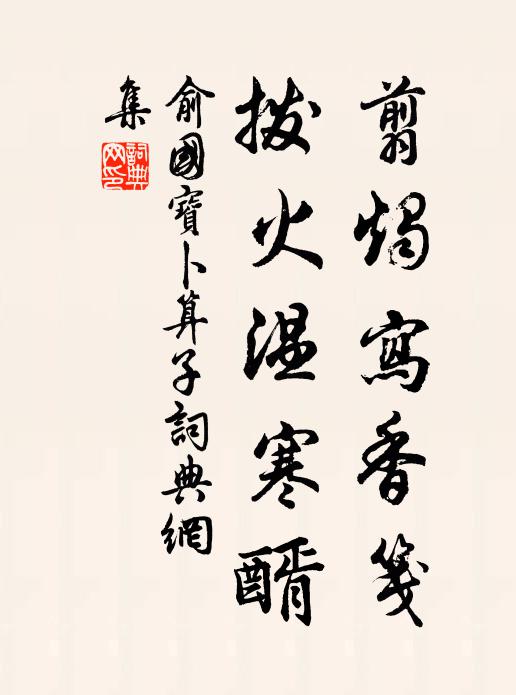 翦燭寫香箋
撥火温寒醑
俞國寶卜算子詞典網
集
詞典网印